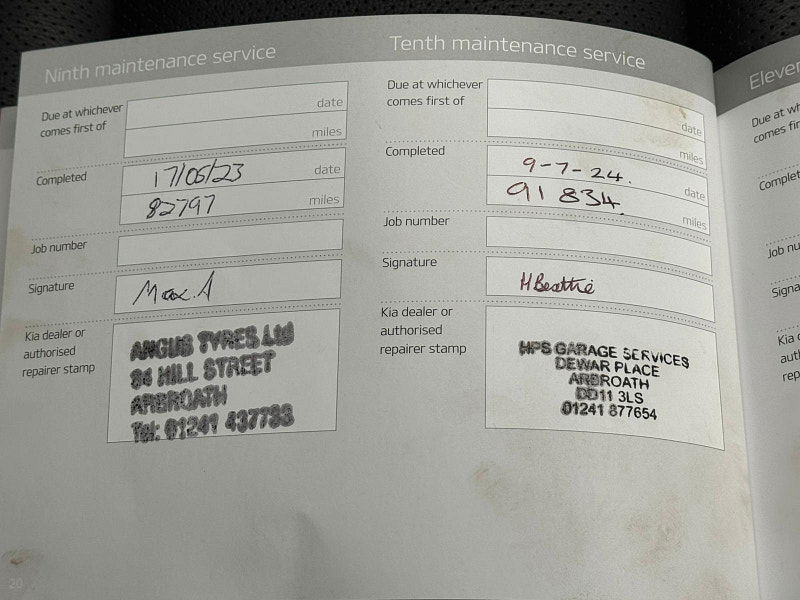 Ninth maintenance service
Due at whichever
comes first of
date
miles
Completed
17/05/23 date
82797 miles
Job number
Signature
Max. A
Kia dealer or
authorised
repairer stamp
ANGUS TYRES Ltd
84 HILL STREET
ARBROATH
Tel: 01241 437733
20
Tenth maintenance service
Due at whichever
comes first of
date
miles
Completed
9-7-24. date
91834. miles
Job number
Signature
H Beattie
Kia dealer or
authorised
repairer stamp
HPS GARAGE SERVICES
DEWAR PLACE
ARBROATH
DD11 3LS
01241 877654